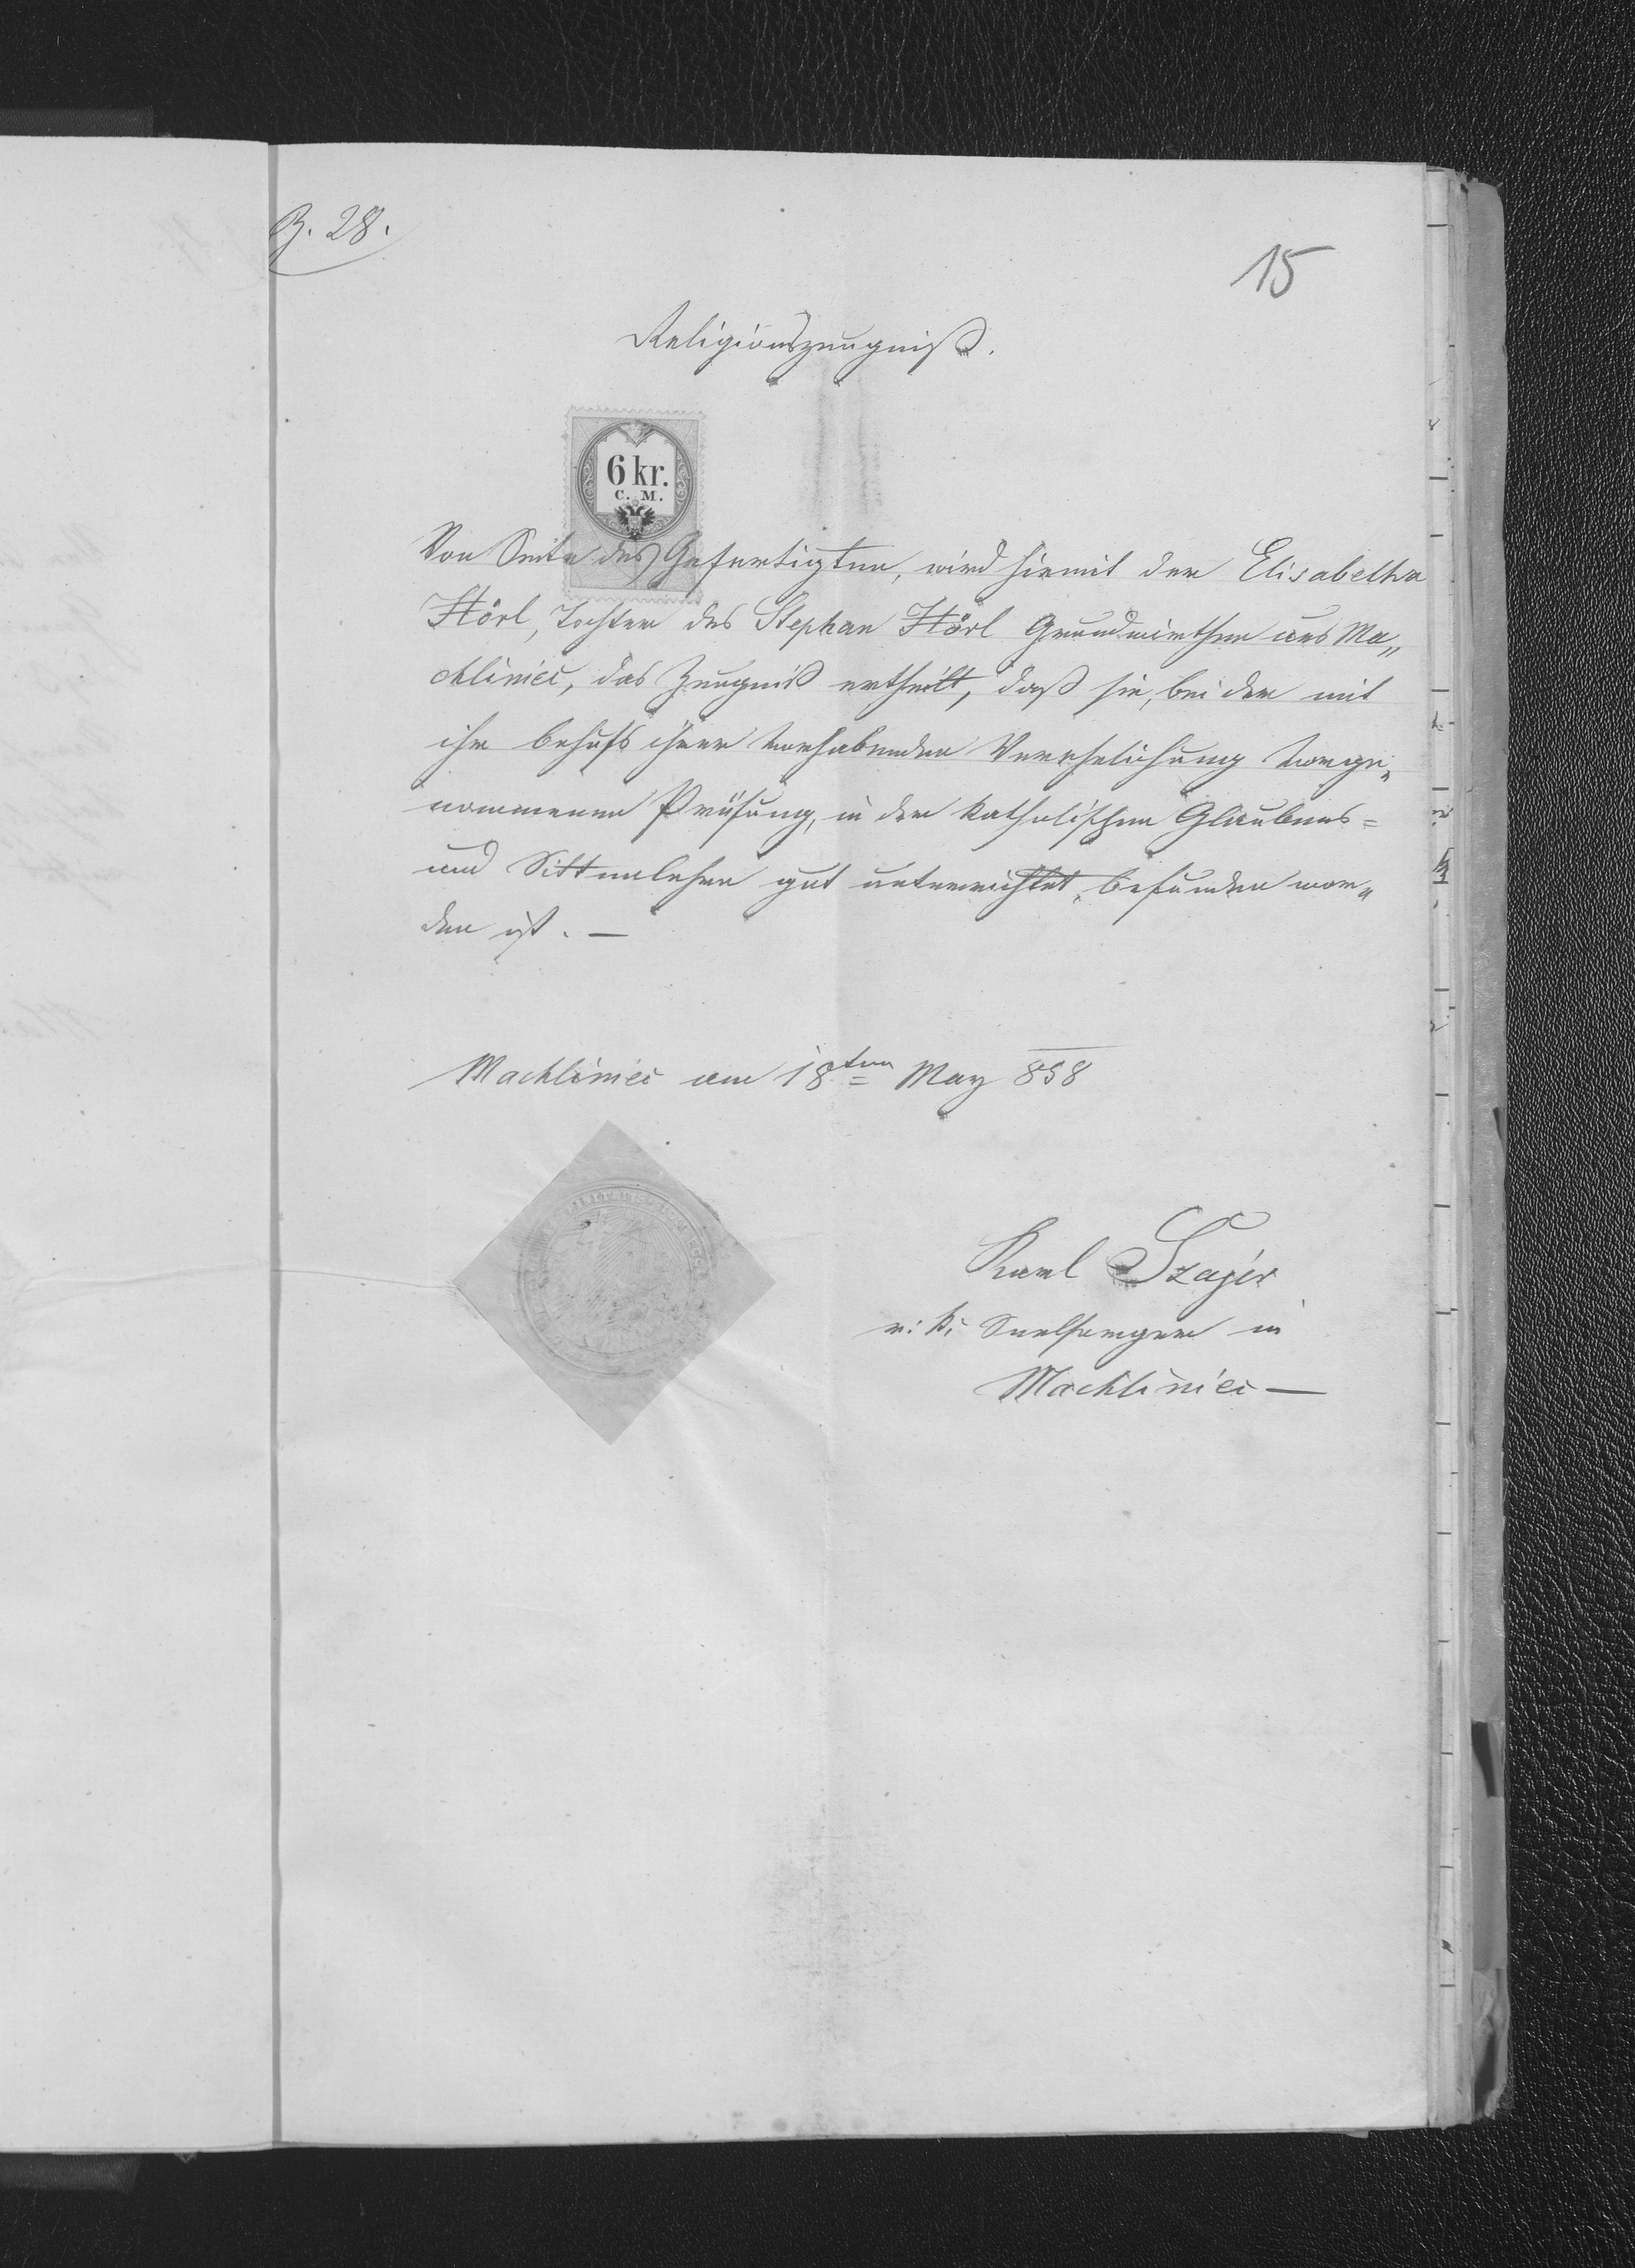 Z. 28.
15
Religionszeugniß.
6 kr.
C. M.
Von Seite des Gefertigten, wird hiemit der Elisabetha
Hörl, Tochter des Stephan Hörl Grundwirthen aus Ma„
chliniec, das Zeugniß ertheilt, daß sie, bei der mit
ihr behufs ihrer vorhabenden Verehelichung vorge„
nommenen Prüfung, in der katholischen Glaubens=
und Sittenlehre gut unterrichtet, befunden wor„
den ist. —
Machliniec am 18ten May 858
Karl Szajer
r: k: Seelsorger in
Machliniec —